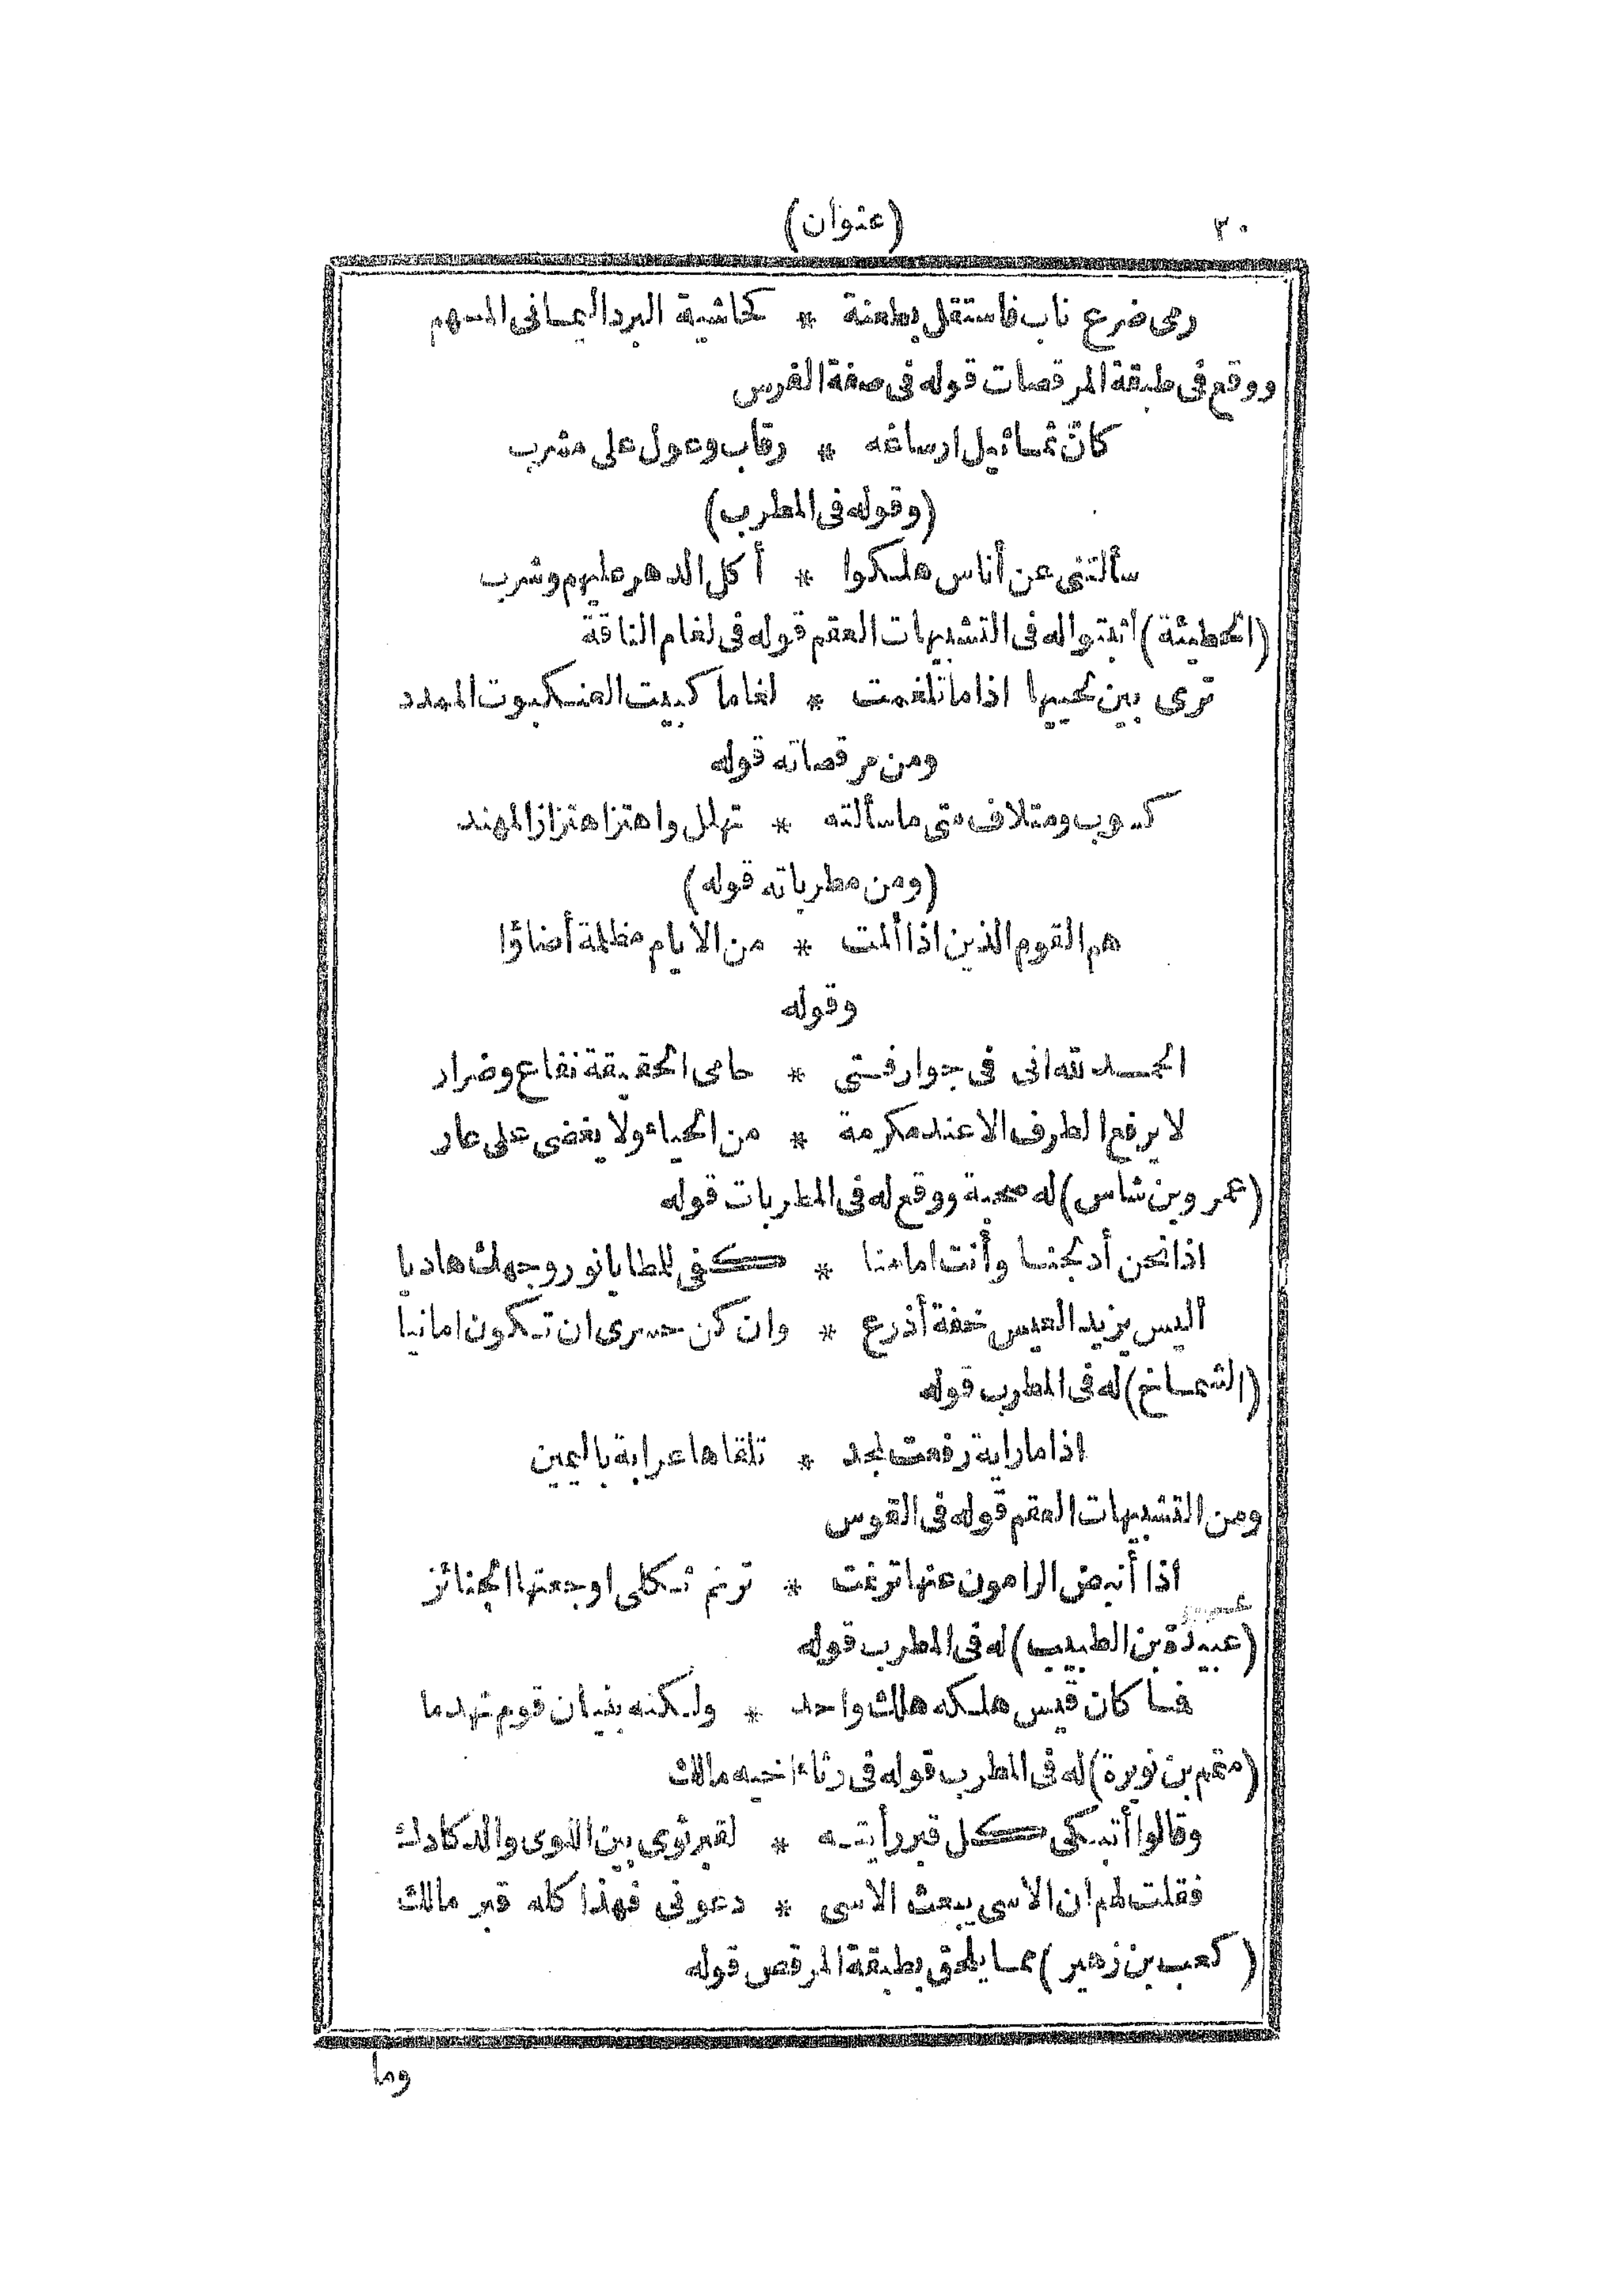 ٣٠ (عنوان)
رمى ضرع ناب فاستقل بطعنة * كحاشية البرد اليمانى المسهم
ووقع فى طبقة المرقصات قوله فى صفة الفرس
كانّ تماثيل ارساغه * رقاب وعول على مشرب
(وقوله فى المطرب)
سألتنى عن أناس هلكوا * أكل الدهر عليهم وشرب
(الحطيئة) اثبتوا له فى التشبيهات العقم قوله فى لغام الناقة
ترى بين لحييها اذا ما تلغمت * لغاما كبيت العنكبوت الممدد
ومن مرقصاته قوله
كسوب ومتلاف متى ما سألته * تهلل واهتز اهتزاز المهند
(ومن مطرباته قوله)
هم القوم الذين اذا ألمت * من الايام مظلمة أضاؤا
وقوله
الحمد لله انى فى جوار فتى * حامى الحقيقة نفاع وضرار
لا يرفع الطرف الا عند مكرمة * من الحياء ولا يغضى على عار
(عمرو بن شاس) له صحبة ووقع له فى المطربات قوله
اذا نحن أدلجنا وأنت امامنا * كفى للمطايا نور وجهك هاديا
أليس يزيد العيس خفة أذرع * وان كن حسرى ان تكون امانيا
(الشماخ) له فى المطرب قوله
اذا ما راية رفعت لمجد * تلقاها عرابة باليمين
ومن التشبيهات العقم قوله فى القوس
اذا أنبض الرامون عنها ترنمت * ترنم ثكلى اوجعتها الجنائز
(عبيدة بن الطبيب) له فى المطرب قوله
فما كان قيس هلكه هلك واحد * ولكنه بنيان قوم تهدما
(متمم بن نويرة) له فى المطرب قوله فى رثاء اخيه مالك
وقالوا أتبكى كل قبر رأيته * لقبر ثوى بين اللوى والدكادك
فقلت لهم ان الاسى يبعث الاسى * دعونى فهذا كله قبر مالك
(كعب بن زهير) مما يلحق بطبقة المرقص قوله
وما